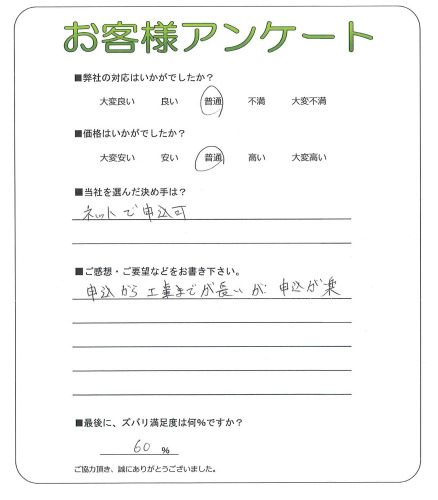 お客様アンケート
■弊社の対応はいかがでしたか?
大変良い 良い 普通 不満 大変不満
■価格はいかがでしたか?
大変安い 安い 普通 高い 大変高い
■当社を選んだ決め手は?
ネットで申込可
■ご感想・ご要望などをお書き下さい。
申込から工事までが長いが、申込が楽
■最後に、ズバリ満足度は何%ですか?
60 %
ご協力頂き、誠にありがとうございました。